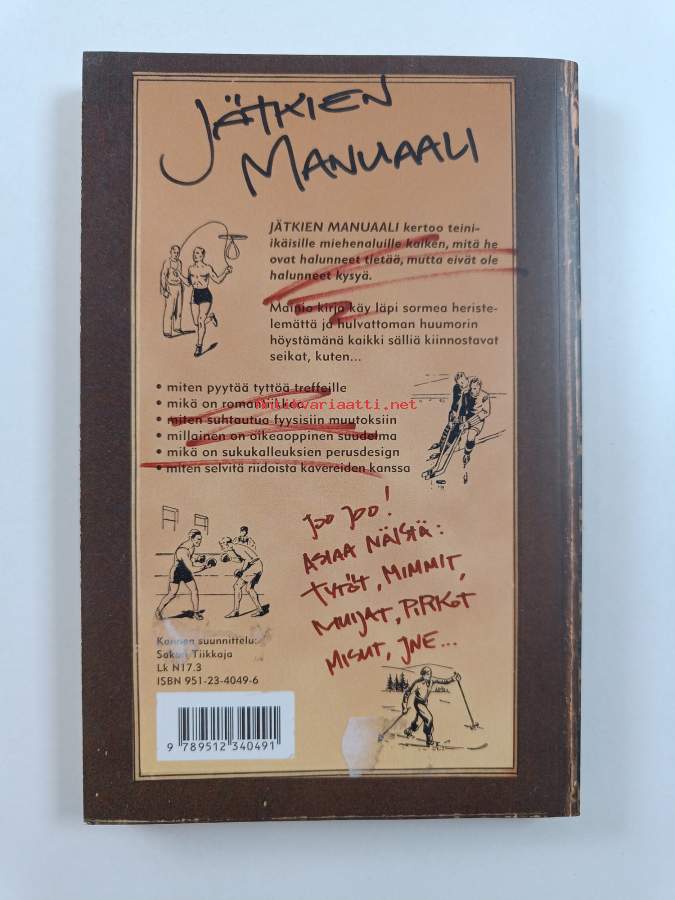 JÄTKIEN
MANUAALI
JÄTKIEN MANUAALI kertoo teini-
ikäisille miehenaluille kaiken, mitä he
ovat halunneet tietää, mutta eivät ole
halunneet kysyä.
Mainio kirja käy läpi sormea heriste-
lemättä ja hulvattoman huumorin
höystämänä kaikki sälliä kiinnostavat
seikat, kuten...
• miten pyytää tyttöä treffeille
• mikä on romantiikkaa
• miten suhtautua fyysisiin muutoksiin
• millainen on oikeaoppinen suudelma
• mikä on sukukalleuksien perusdesign
• miten selvitä riidoista kavereiden kanssa
JOO JOO!
ASIAA NÄISTÄ:
TYTÖT, MIMMIT,
MUIJAT, PIRKOT,
MISUT, JNE...
Kannen suunnittelu:
Sakari Tiikkaja
Lk N17.3
ISBN 951-23-4049-6
9 789512 340491